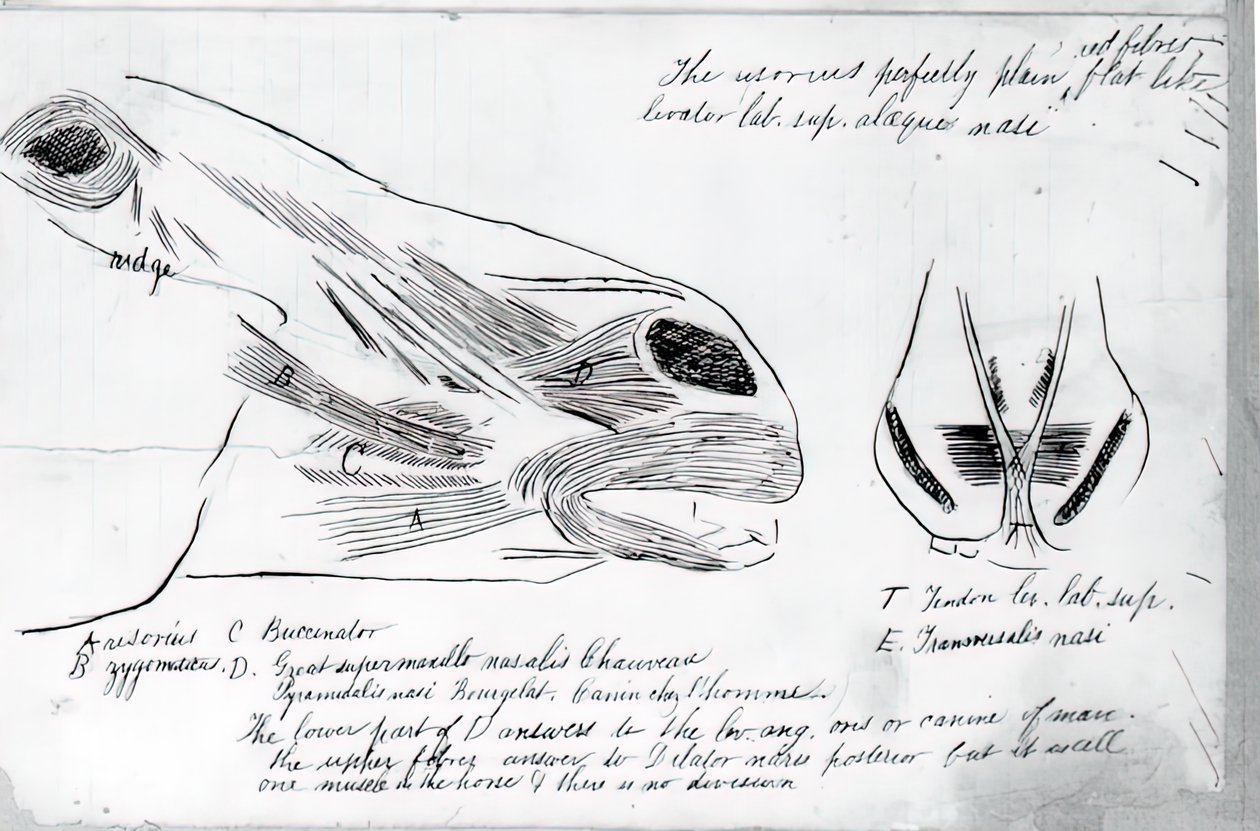 The risorius perfectly plain, red fibres flat like
levator lab. sup. alaeque nasi
ridge
B
D
C
A
T
A risorius C Buccinator
B zygomaticus. D. Great supermaxillo nasalis Chauveau
Pyramidalis nasi Bourgelat. Canin chez l'homme.)
The lower part of D answers to the lev. ang. oris or canine of man.
the upper fibres answer to Dilator naris posterior but it is all
one muscle in the horse & there is no division
T Tendon lev. lab. sup.
E. Transversalis nasi